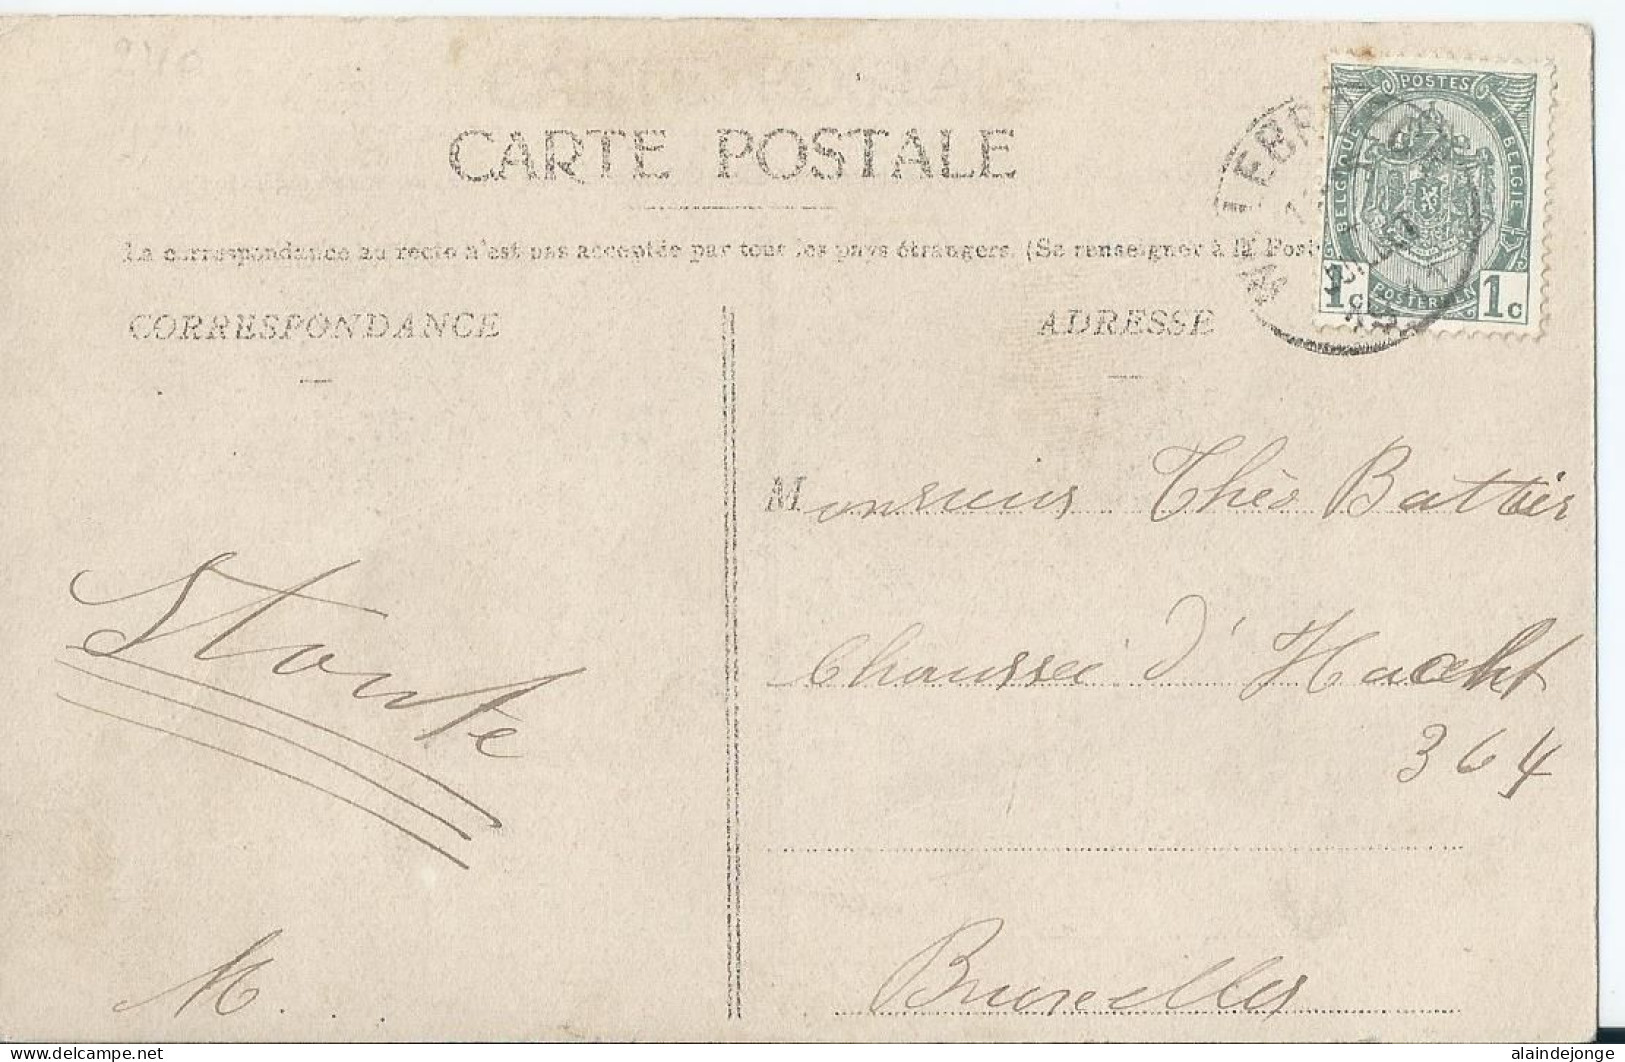 240
CARTE POSTALE
La correspondance au recto n'est pas acceptée par tous les pays étrangers. (Se renseigner à la Poste
CORRESPONDANCE
ADRESSE
POSTES
BELGIQUE
BELGIE
POSTERIJEN
1c 1c
Monsieur Théo Battier
Chaussée d'Haecht
364
Bruxelles
Stoute
M...
delcampe.net
alaindejonge